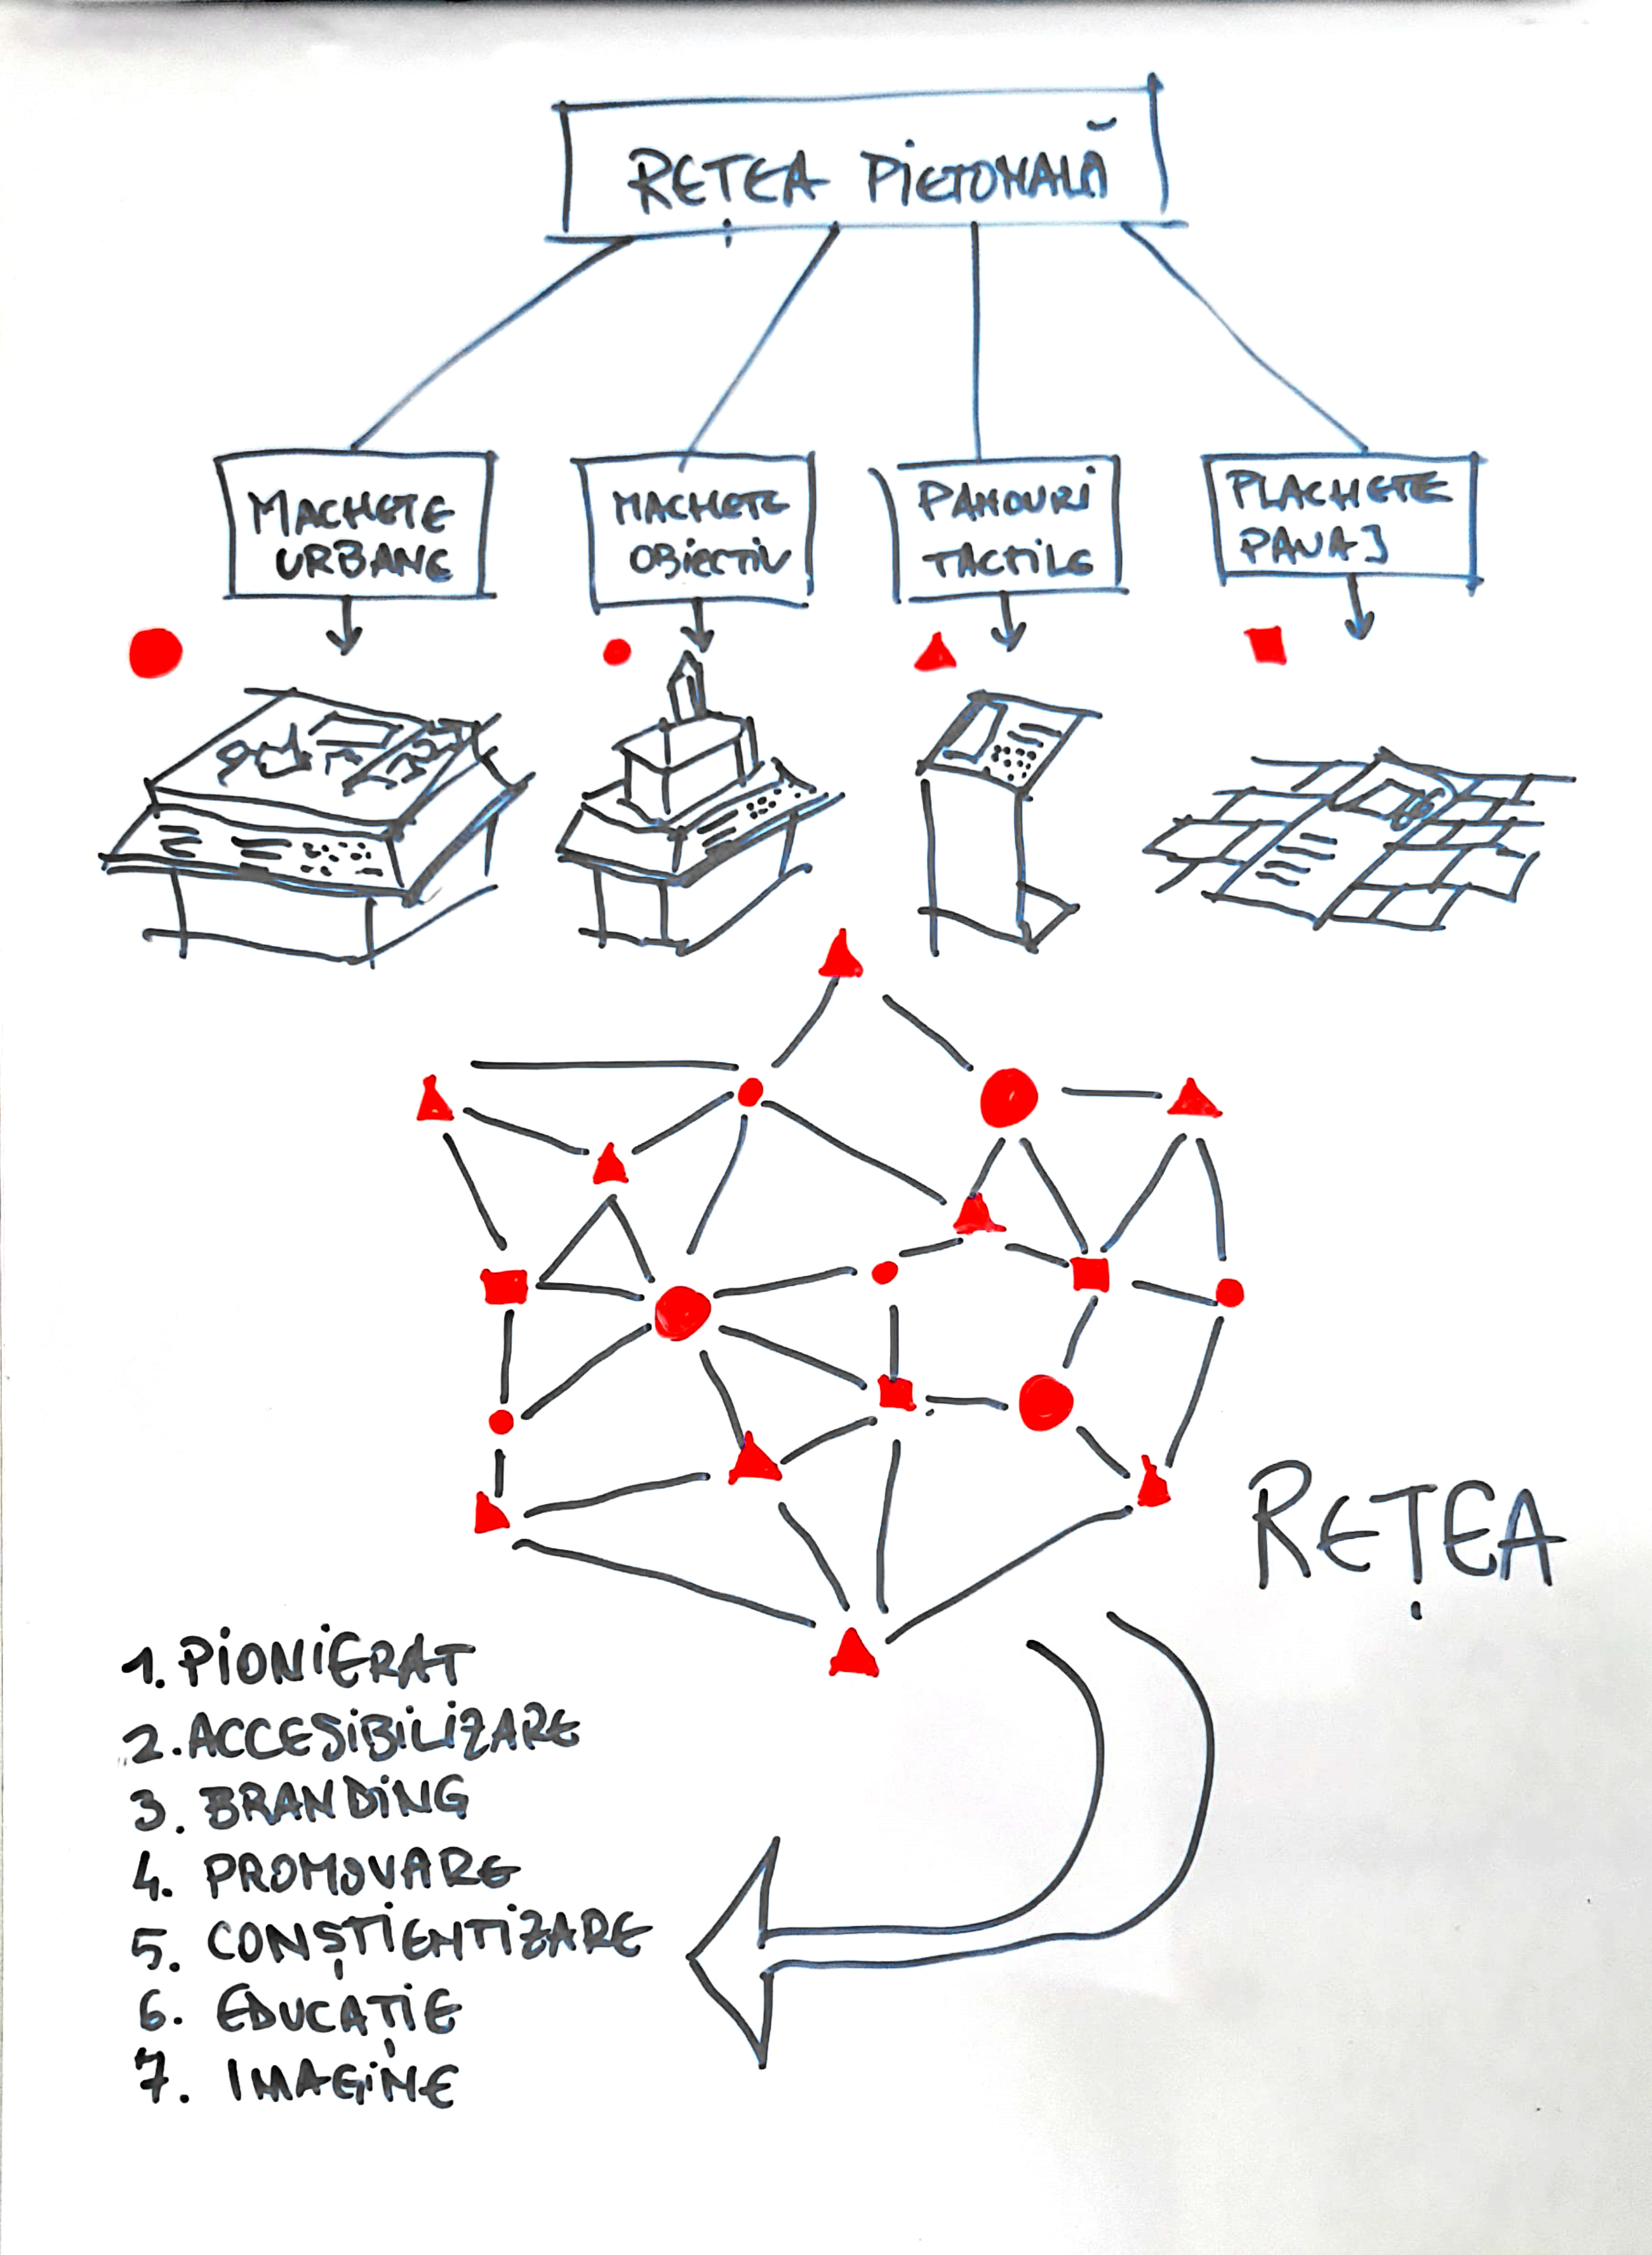 REȚEA PIETONALĂ
MACHETE
URBANE
MACHETE
OBIECTIV
PANOURI
TACTILE
PLACHETE
PAVAJ
REȚEA
1. PIONIERAT
2. ACCESIBILIZARE
3. BRANDING
4. PROMOVARE
5. CONȘTIENTIZARE
6. EDUCAȚIE
7. IMAGINE